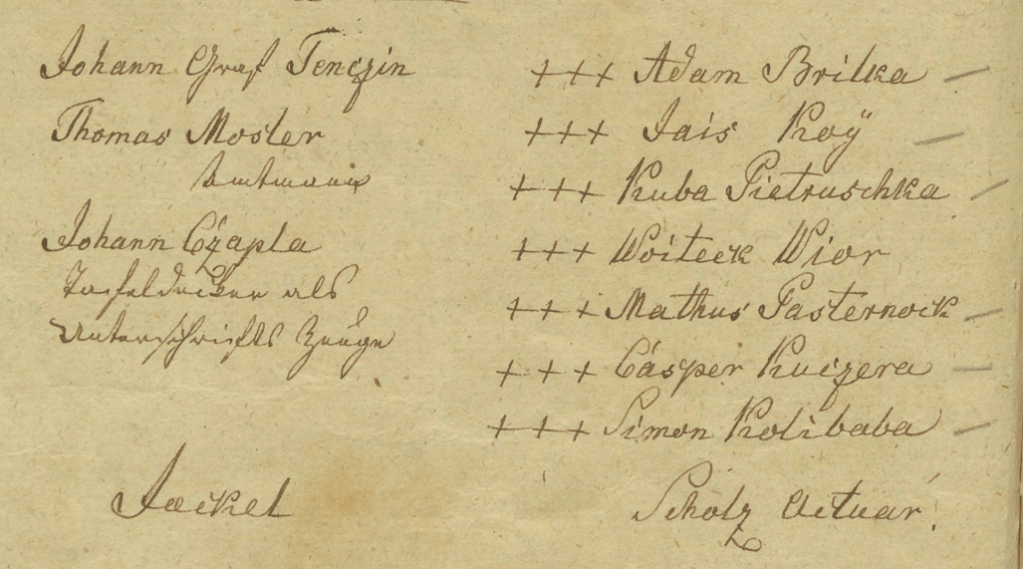 Johann Graf Tenczin
Thomas Mosler
Amtmann
Johann Czapla
Tafeldecker als
Unterschrifts Zeuge
Jaeckel
+++ Adam Brilka —
+++ Jais Koÿ —
+++ Kuba Pietruschka —
+++ Woiteck Wior
+++ Mathus Pasternock —
+++ Casper Kuczera —
+++ Simon Kolibaba —
Scholz Actuar.